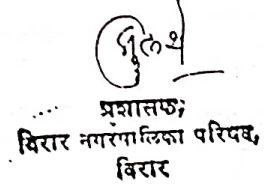 प्रशासक,
विरार नगरपालिका परिषद,
विरार